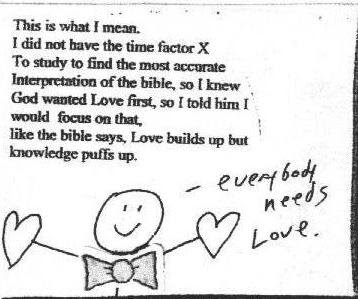 This is what I mean.
I did not have the time factor X
To study to find the most accurate
Interpretation of the bible, so I knew
God wanted Love first, so I told him I
would focus on that,
like the bible says, Love builds up but
knowledge puffs up.
- everybody
needs
Love.